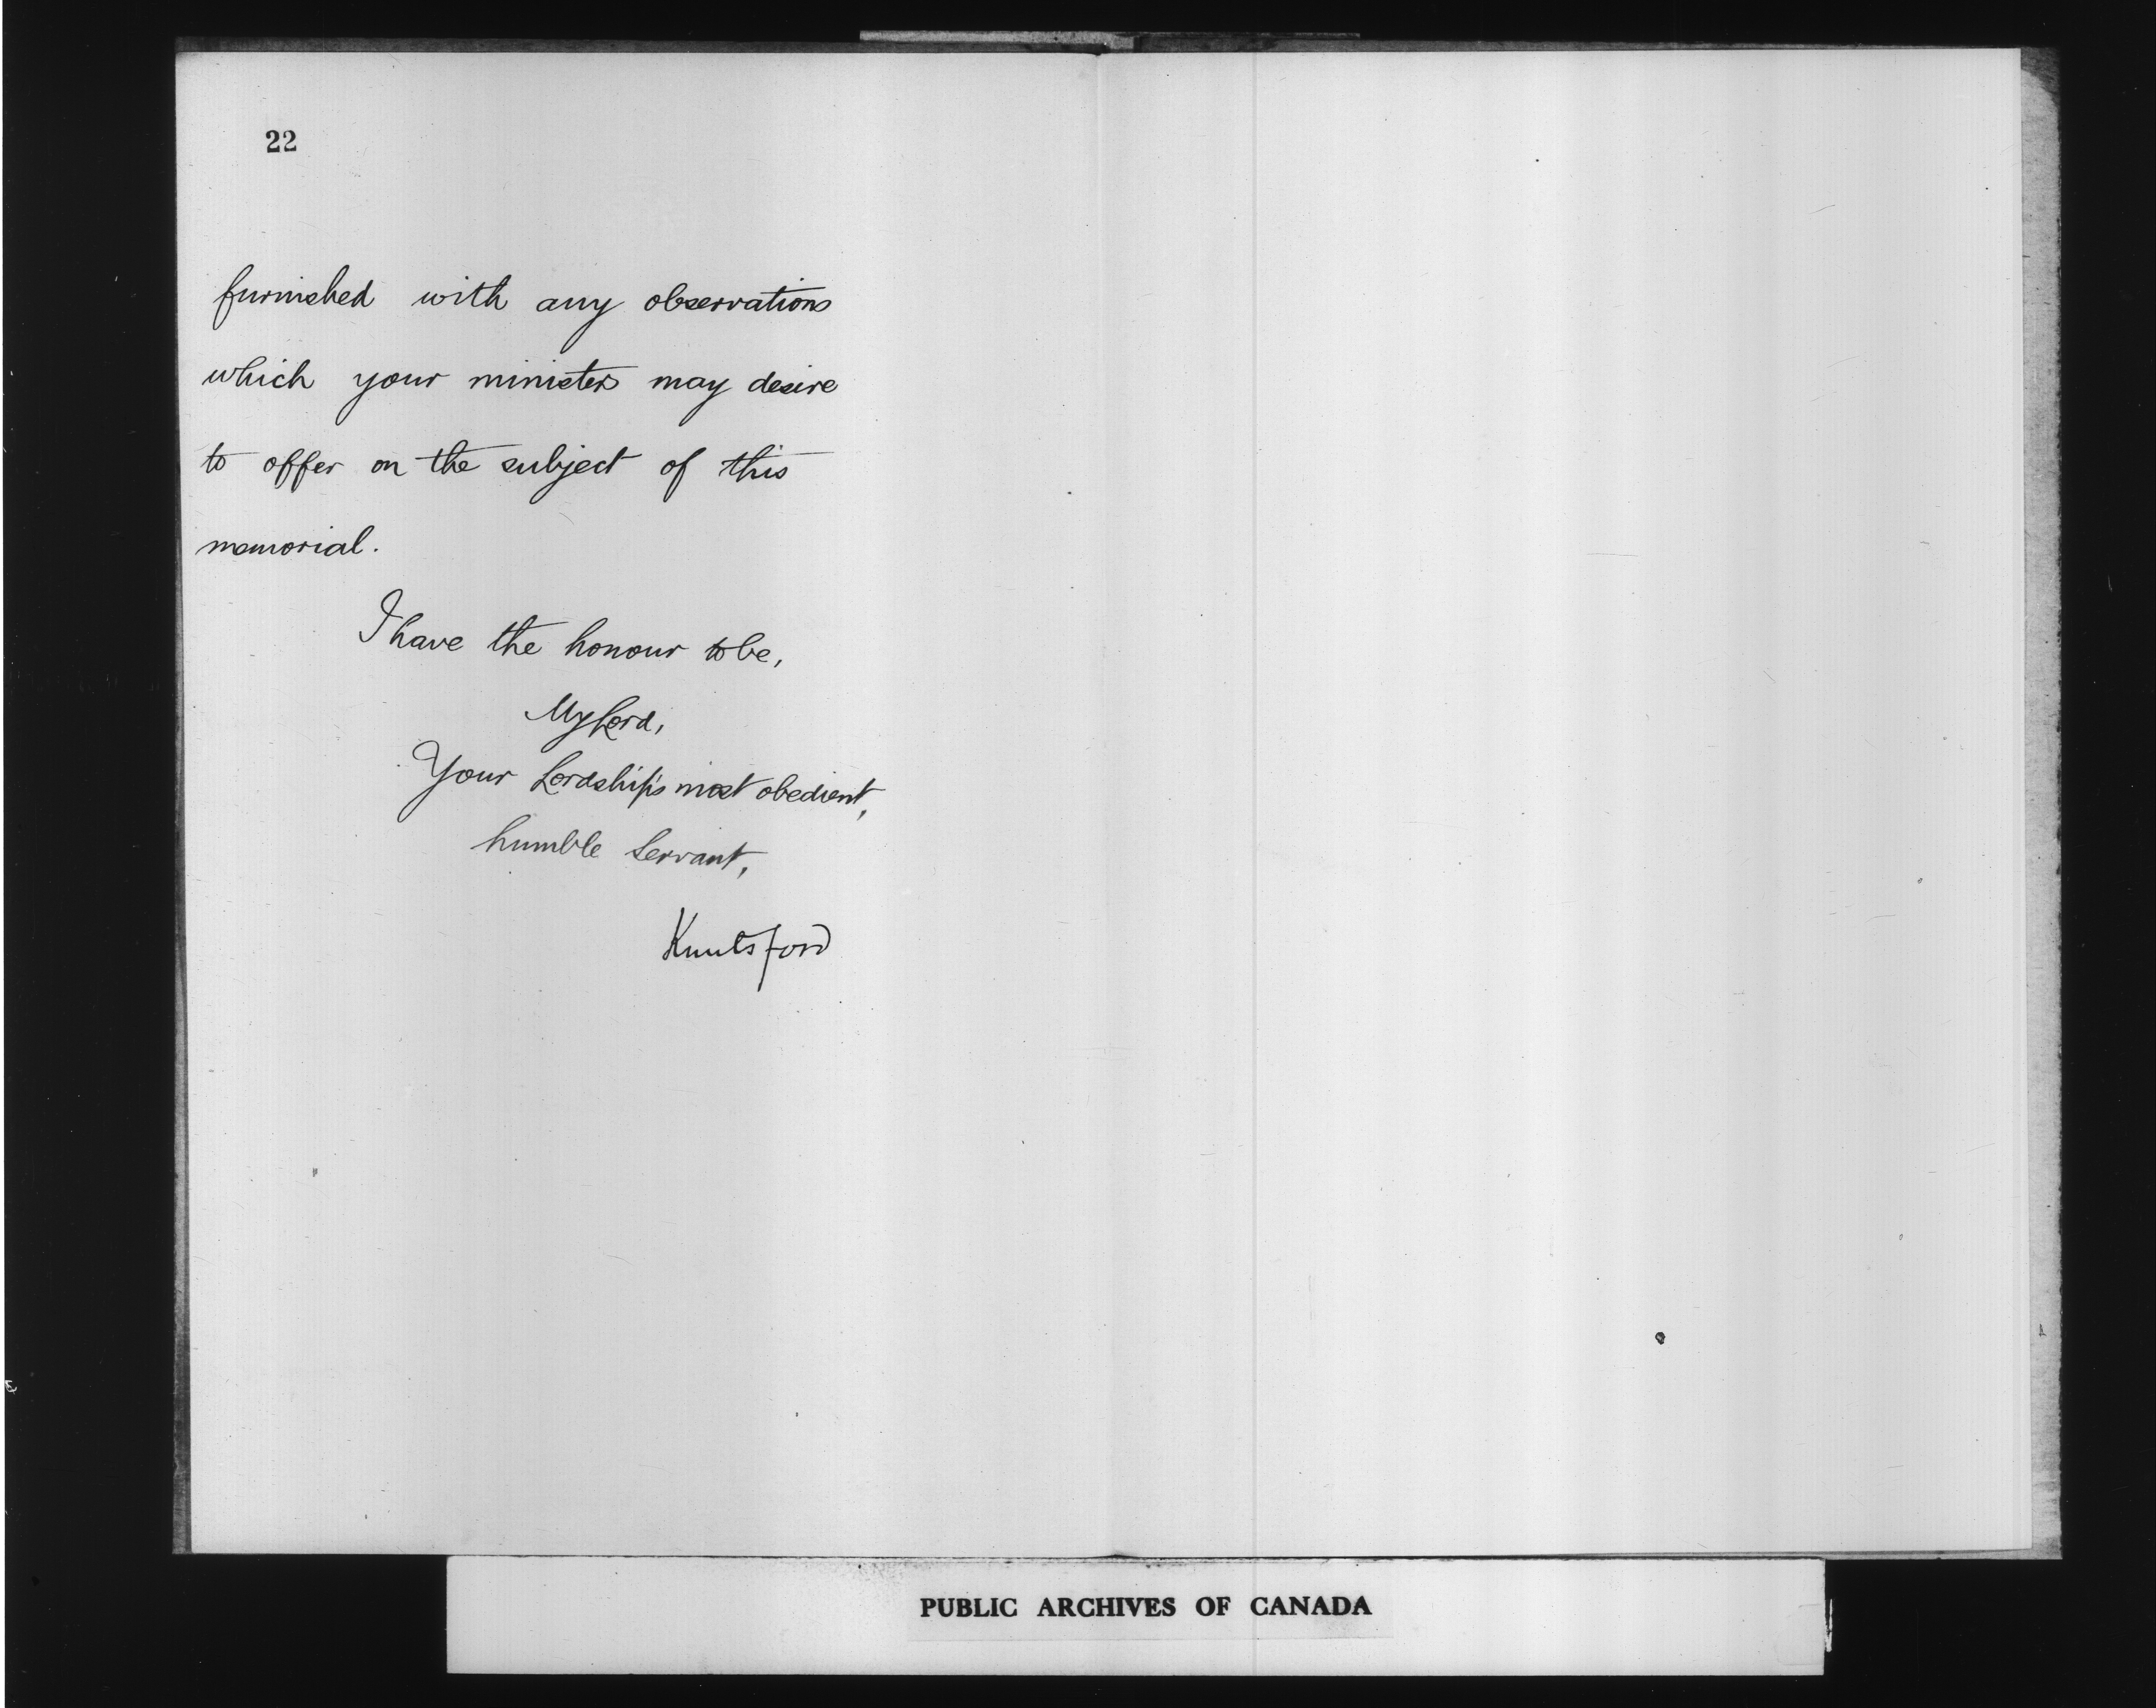 22
furnished with any observations
which your ministers may desire
to offer on the subject of this
memorial.
I have the honour to be,
My Lord,
Your Lordship's most obedient,
humble Servant,
Knutsford
PUBLIC ARCHIVES OF CANADA